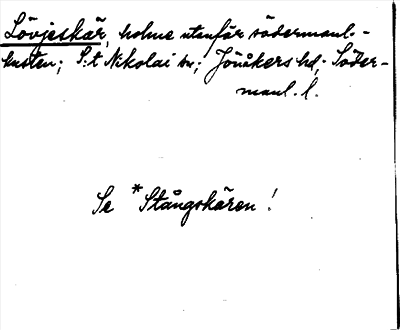 Lövjeskär, holme utanför södermanl.-
kusten; S:t Nikolai sn; Jönåkers hd; Söder-
manl. l.
Se *Stångskären!